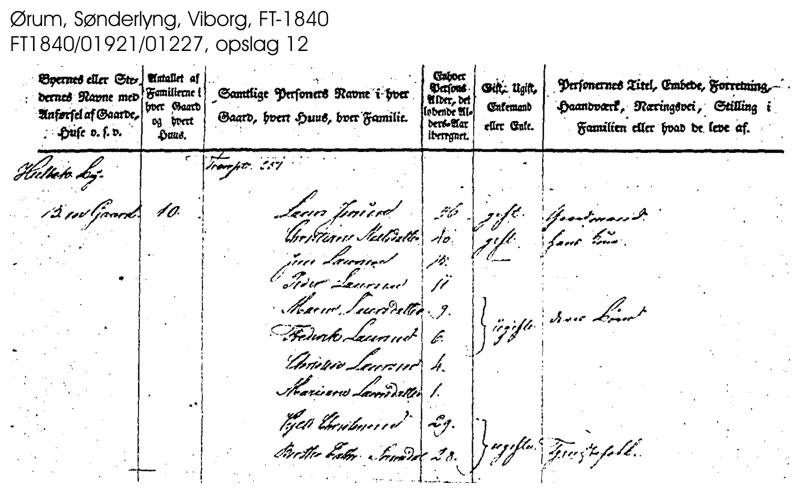 Ørum, Sønderlyng, Viborg, FT-1840
FT1840/01921/01227, opslag 12
Byernes eller Ste-
dernes Navne med
Anførsel af Gaarde,
Huse o. s. v.
Antallet af
Familierne i
hver Gaard
og hvert
Huus.
Samtlige Personers Navne i hver
Gaard, hvert Huus, hver Familie.
Enhver
Persons
Alder, det
løbende Al-
ders-Aar
iberegnet.
Gift, Ugift,
Enkemand
eller Enke.
Personernes Titel, Embede, Forretning,
Haandværk, Næringsvei, Stilling i
Familien eller hvad de leve af.
Transpt. 251
Bye
Gaard 10. Laurs Jensen gift Gaardmand
Christiane Nielsdatter 40. gift hans Kone
Jens Laursen —
Peder Laursen 11
Maren Laursdatter 9. ugifte deres Børn
Frederik Laursen 6.
Christen Laursen 4.
Mariane Laursdatter 1.
Christensen 29. ugifte Tjenestefolk
Birthe Cathr. 28.